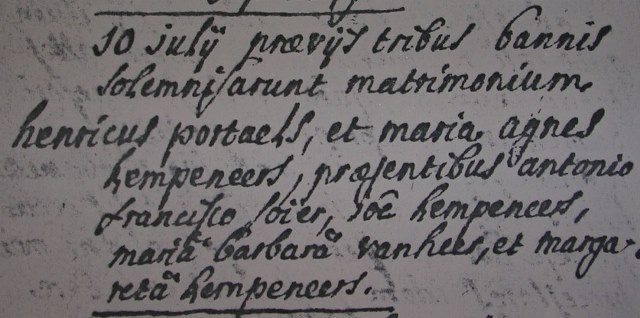 10 julij prævijs tribus bannis
solemnisarunt matrimonium
henricus portaels, et maria agnes
hempeneers, præsentibus antonio
francisco soier, joē hempeneers,
mariâ barbarâ vanhees, et marga-
retâ hempeneers.